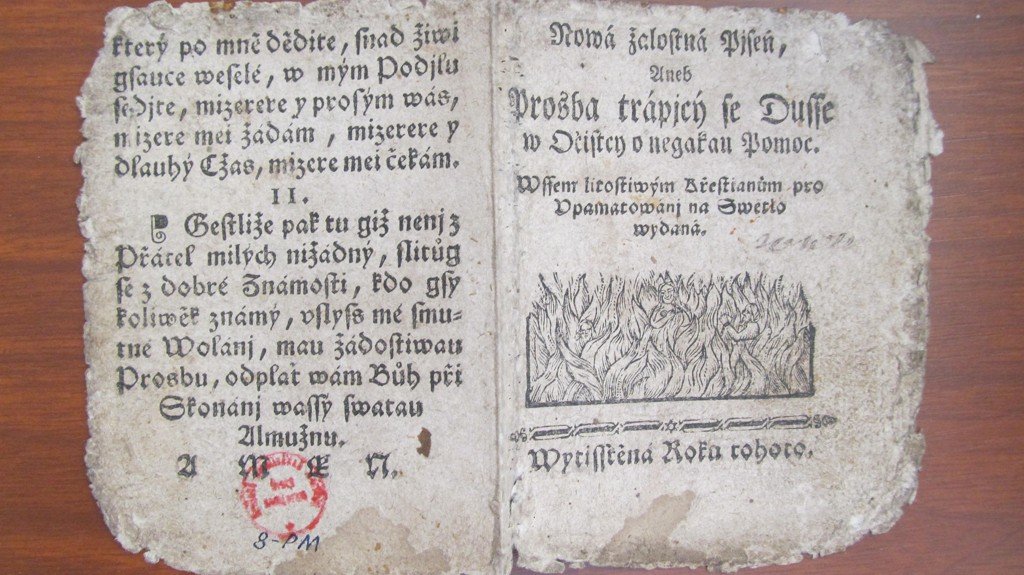 který po mně dědite, snad žiwi
gsauce weselé, w mým Podjlu
sedjte, mizerere y prosým wás,
mizere mei žádám, mizerere y
dlauhý Cžas, mizere mei čekám.
II.
Gestliže pak tu giž nenj z
Přátel milých nižádný, slitůg
se z dobré Známosti, kdo gsy
koliwěk známý, vslyss mé smu-
tné Wolánj, mau žádostiwau
Prosbu, odplať wám Bůh při
Skonánj wassy swatau
Almužnu.
A M E N.
8-PM
Nowá žalostná Pjseň,
Aneb
Prosba trápjcý se Dusse
w Očistcy o negakau Pomoc.
Wssem litostiwým Křestianům pro
Vpamatowánj na Swětlo
wydaná.
Wytisstěná Roku tohoto.